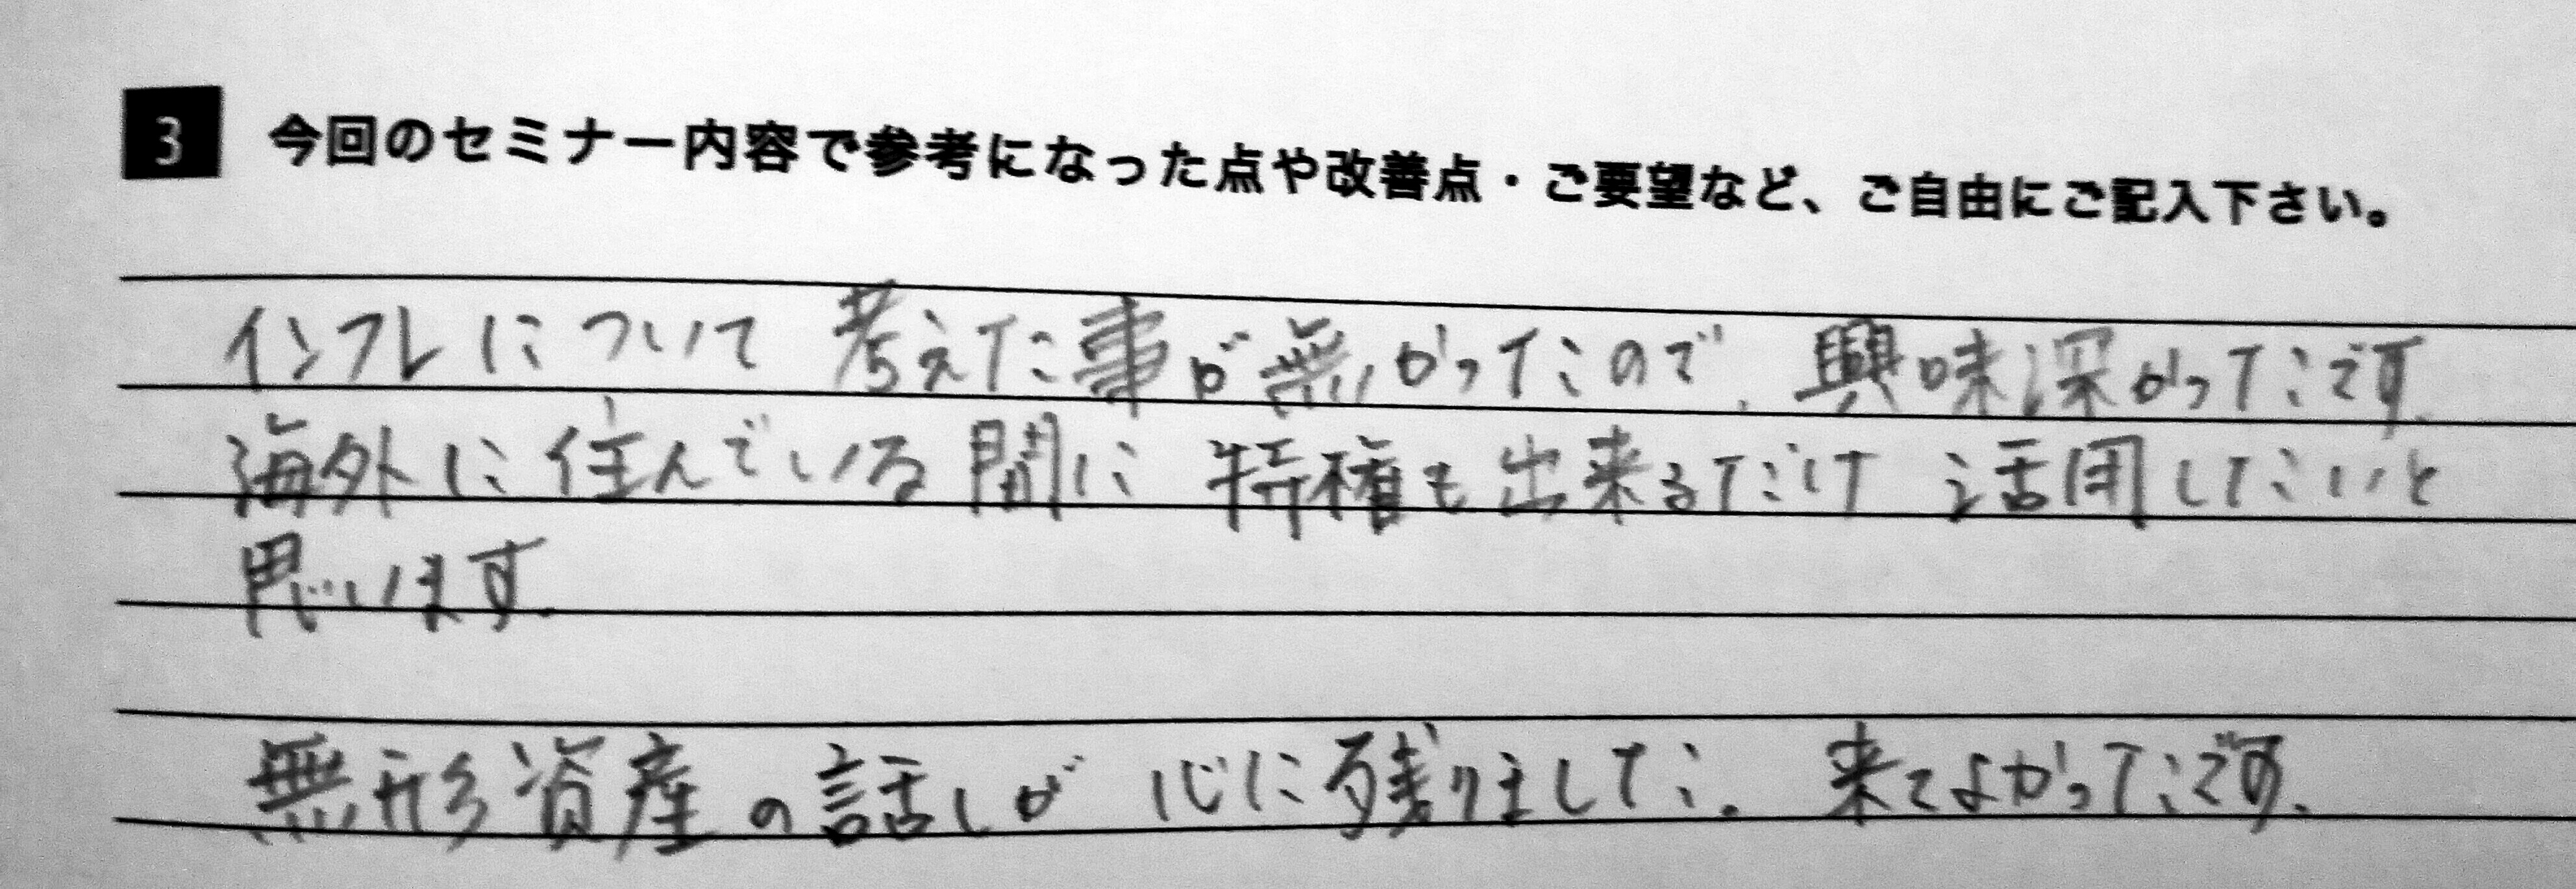 3 今回のセミナー内容で参考になった点や改善点・ご要望など、ご自由にご記入下さい。
インフレについて考えた事が無かったので、興味深かったです。
海外に住んでいる間に特権も出来るだけ活用したいと
思います。
無形資産の話しが心に残りました。来てよかったです。